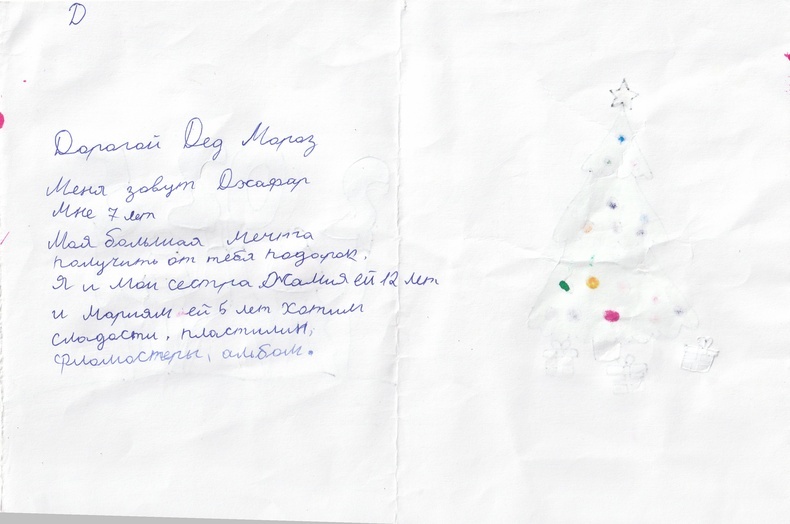 Д
Дорогой Дед Мороз
Меня зовут Джафар
Мне 7 лет
Моя большая мечта
получить от тебя подарок.
Я и мои сестра Джамия ей 12 лет
и Мариям ей 5 лет хотим
сладости, пластилин,
фломастеры, альбом.